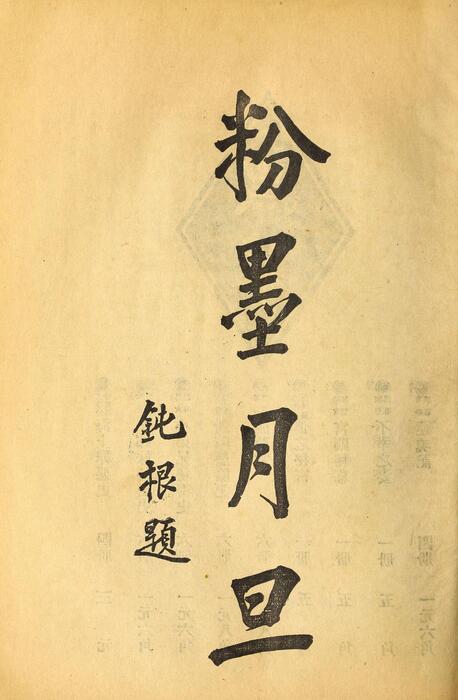 粉墨月旦
鈍根題